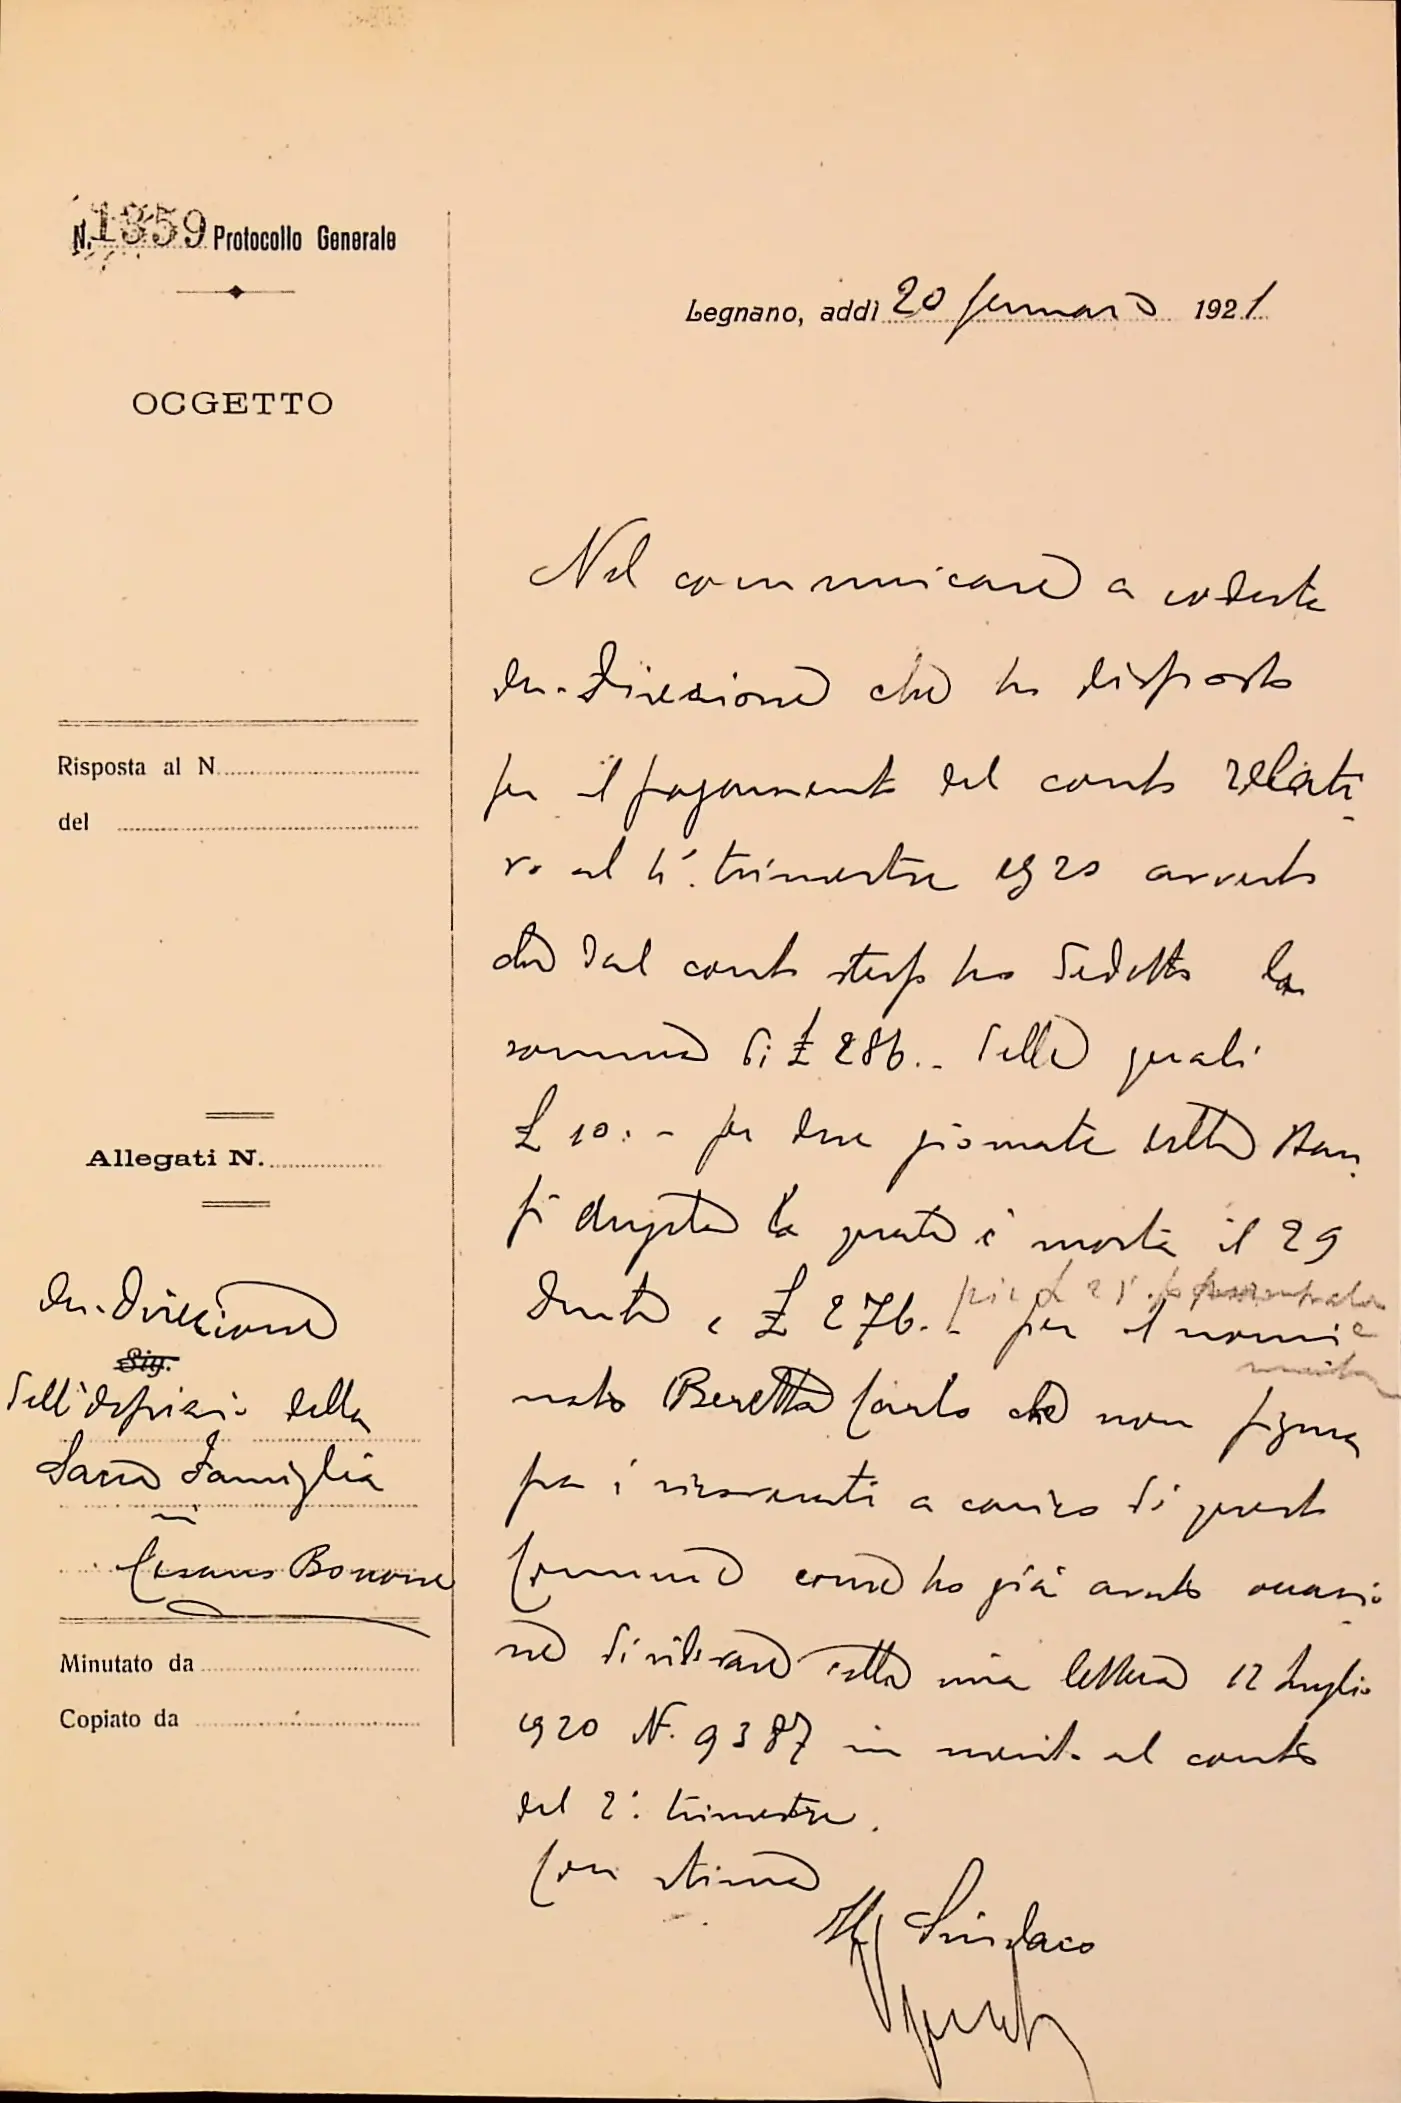 N. 1359 Protocollo Generale
OGGETTO
Risposta al N.
del
Allegati N.
On. Direzione
Sig.
dell'Ospizio della
Sacra Famiglia
in
Cesano Boscone
Minutato da
Copiato da
Legnano, addì 20 gennaio 1921
Nel comunicare a codesta
On. Direzione che ho disposto
per il pagamento del conto relati
vo al 4°. trimestre 1920 avverto
che dal conto stesso ho dedotto la
somma di £ 286.- delle quali
£ 10.- per due giornate della
la quale è morta il 29
detto e £ 276.- per il nomi
più £ 25
nato Beretta Carlo che non figura
fra i ricoverati a carico di questo
Comune come ho già avuto occasio
ne di rilevare colla mia lettera 12 luglio
1920 N. 9387 in merito al conto
del 2°. trimestre.
Con stima
Il Sindaco